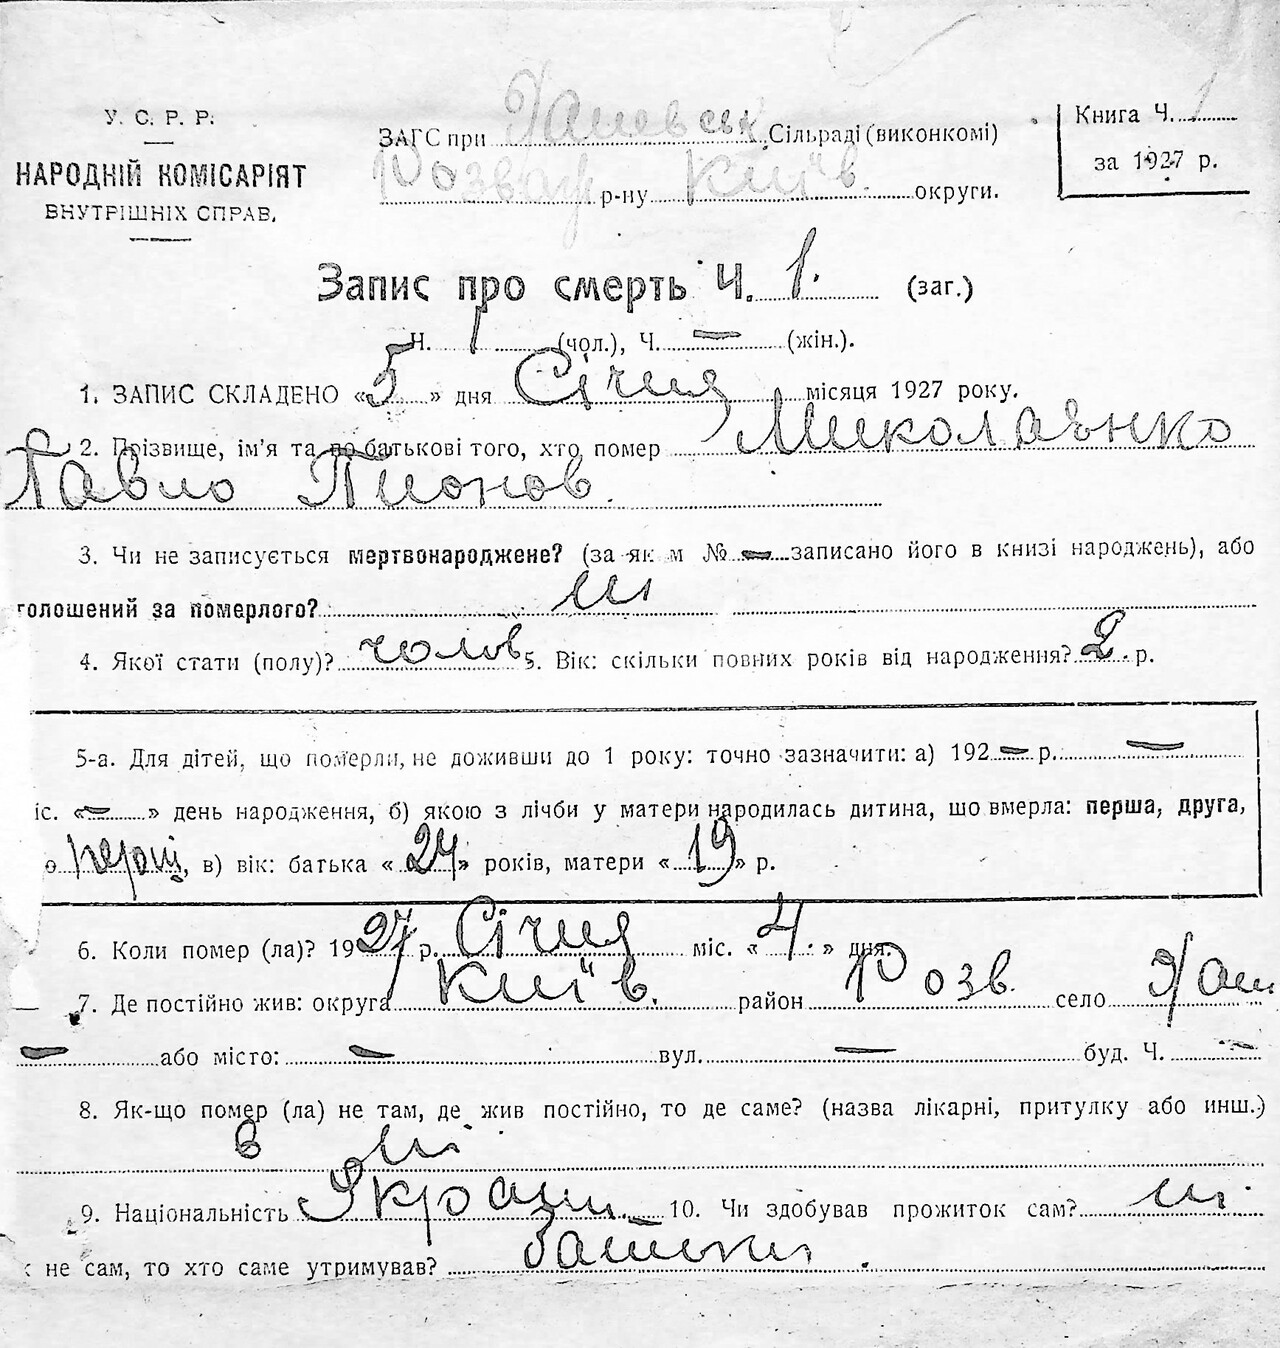 У. С. Р. Р.
НАРОДНІЙ КОМІСАРІЯТ
ВНУТРІШНІХ СПРАВ.
ЗАГС при Сільраді (виконкомі)
Розваж р-ну Київ. округи.
Книга Ч. 1
за 1927 р.
Запис про смерть Ч. 1. (заг.)
Ч. 1 (чол.), Ч. — (жін.).
1. ЗАПИС СКЛАДЕНО «5» дня Січня місяця 1927 року.
2. Прізвище, ім'я та по батькові того, хто помер Миколаєнко
Павло
3. Чи не записується мертвонароджене? (за як м № — записано його в книзі народжень), або
голошений за померлого? ні
4. Якої стати (полу)? чолов 5. Вік: скільки повних років від народження? 2 р.
5-а. Для дітей, що померли, не доживши до 1 року: точно зазначити: а) 192 — р. —
іс. « — » день народження, б) якою з лічби у матери народилась дитина, що вмерла: перша, друга,
о , в) вік: батька «24» років, матери «19» р.
6. Коли помер (ла)? 1927 р. Січня міс. «4.» дня.
7. Де постійно жив: округа Київ. район Розв. село
— або місто: — вул. — буд. Ч. —
8. Як-що помер (ла) не там, де жив постійно, то де саме? (назва лікарні, притулку або инш.)
9. Національність 10. Чи здобував прожиток сам? ні
не сам, то хто саме утримував? батьки